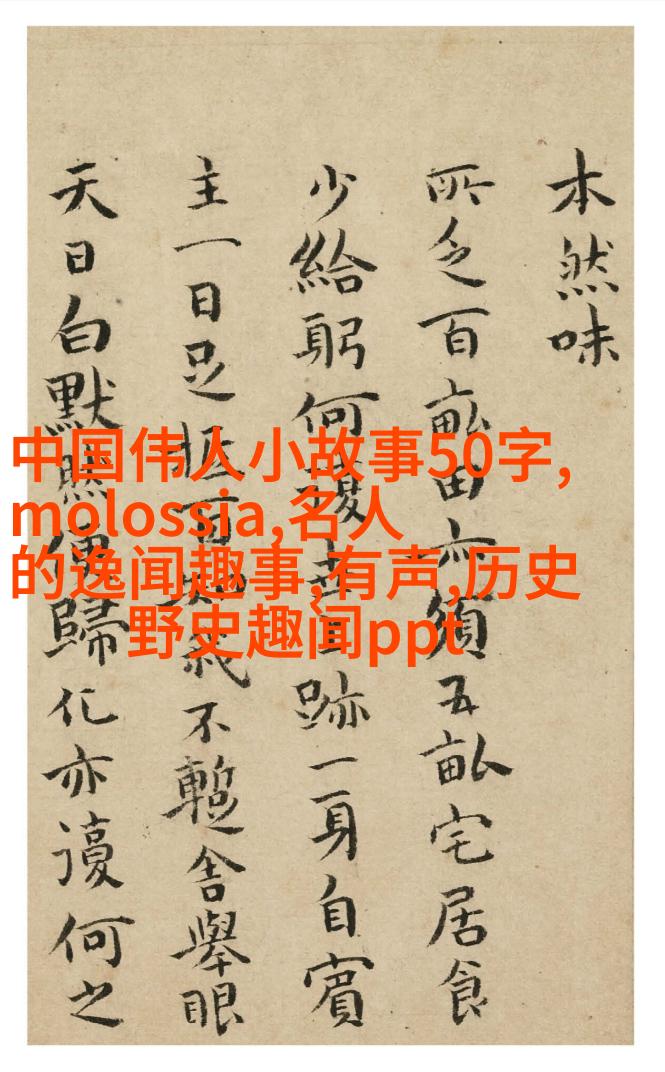 本然味
所乏百畝田亦須五畝宅居食
少給躬何跡一身自賓
主一日足抵百不暫舍舉眼
天日白默歸化亦何之
中国伟人小故事50字,
molossia,名人
的逸闻趣事,有声,历史
野史趣闻ppt